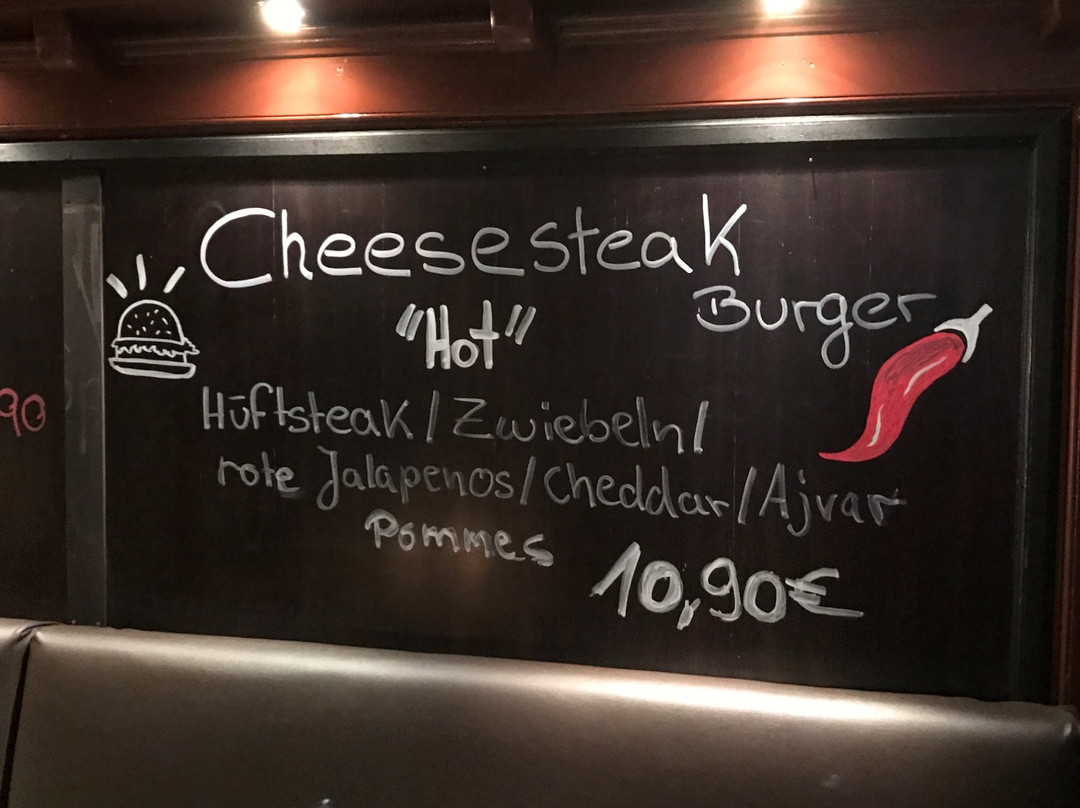 Cheesesteak
Burger
"Hot"
Hüftsteak/Zwiebeln/
rote Jalapenos/Cheddar/Ajvar
Pommes
10,90€
90